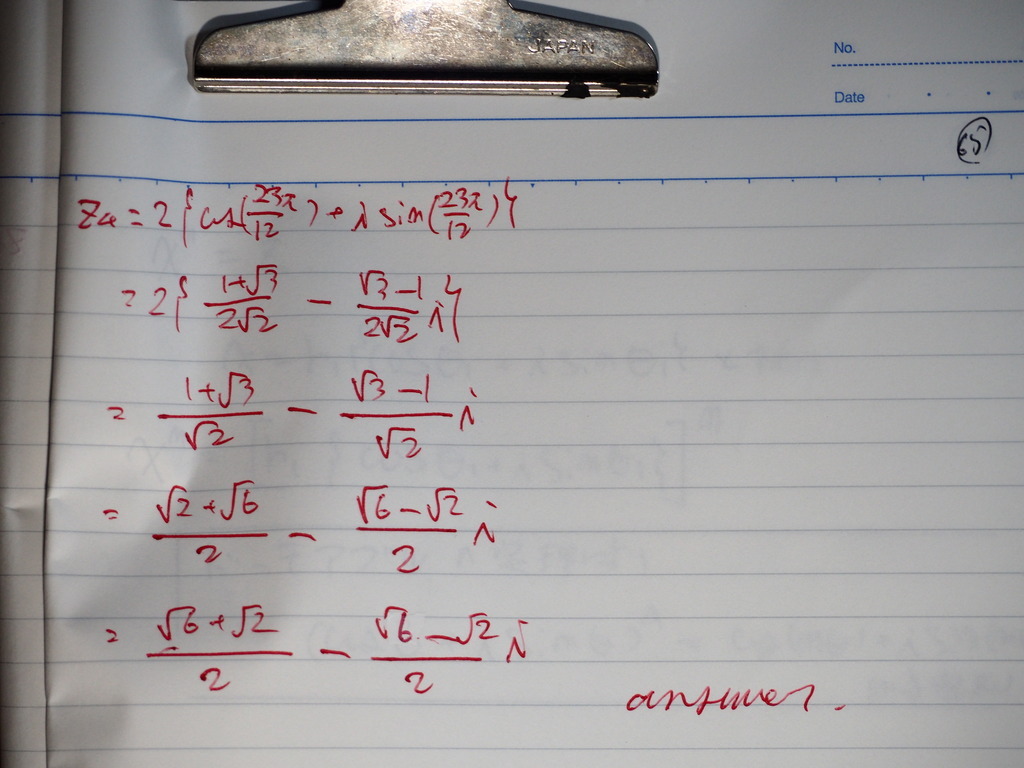 JAPAN
No.
Date
65
Z₄ = 2{cos(23π/12) + i sin(23π/12)}
= 2{(1+√3)/(2√2) − (√3−1)/(2√2) i}
= (1+√3)/√2 − (√3−1)/√2 i
= (√2+√6)/2 − (√6−√2)/2 i
= (√6+√2)/2 − (√6−√2)/2 i
answer.